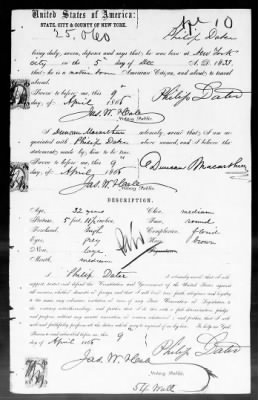 United States of America:
STATE, CITY & COUNTY OF NEW YORK.
No 10
25,060
Philip Dater
being duly sworn, deposes and says that he was born at New York
city on the 5" day of Dec A. D. 1833.
that he is a native born American Citizen, and about to travel
abroad.
Sworn to before me, this 9"
day of April 1866
Philip Dater
Jas. W. Hale
Notary Public.
I Duncan Macarthur solemnly, swear that I am
acquainted with Philip Dater and believe the
statements made by him to be true
Sworn to before me, this 9"
day of April 1866
Duncan Macarthur
Jas. W. Hale
Notary Public.
DESCRIPTION.
Age, 32 years
Chin, medium
Stature, 5 feet 10 inches
Face, round
Forehead, high
Complexion, florid
Eyes, grey
Hair, brown
Nose, large
Mouth, medium
I Philip Dater do solemnly swear that I will
support, protect and defend the Constitution and Government of the United States against
all enemies, whether domestic or foreign; and that I will bear true faith, allegiance and loyalty
to the same, any ordinance, resolution or law of any State Convention or Legislature to
the contrary notwithstanding; and further, that I do this with a full determination, pledge
and purpose, without any mental reservation or evasion whatsoever; and further, that I will
well and faithfully perform all the duties which may be required of me by law. So help me God.
Sworn and subscribed before me, this 9"
day of April 1866
Philip Dater
Jas. W. Hale
Notary Public.
54 Wall